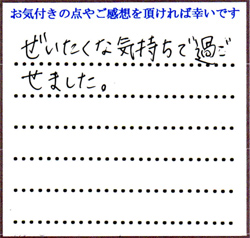 お気付きの点やご感想を頂ければ幸いです
ぜいたくな気持ちで過ご
せました。